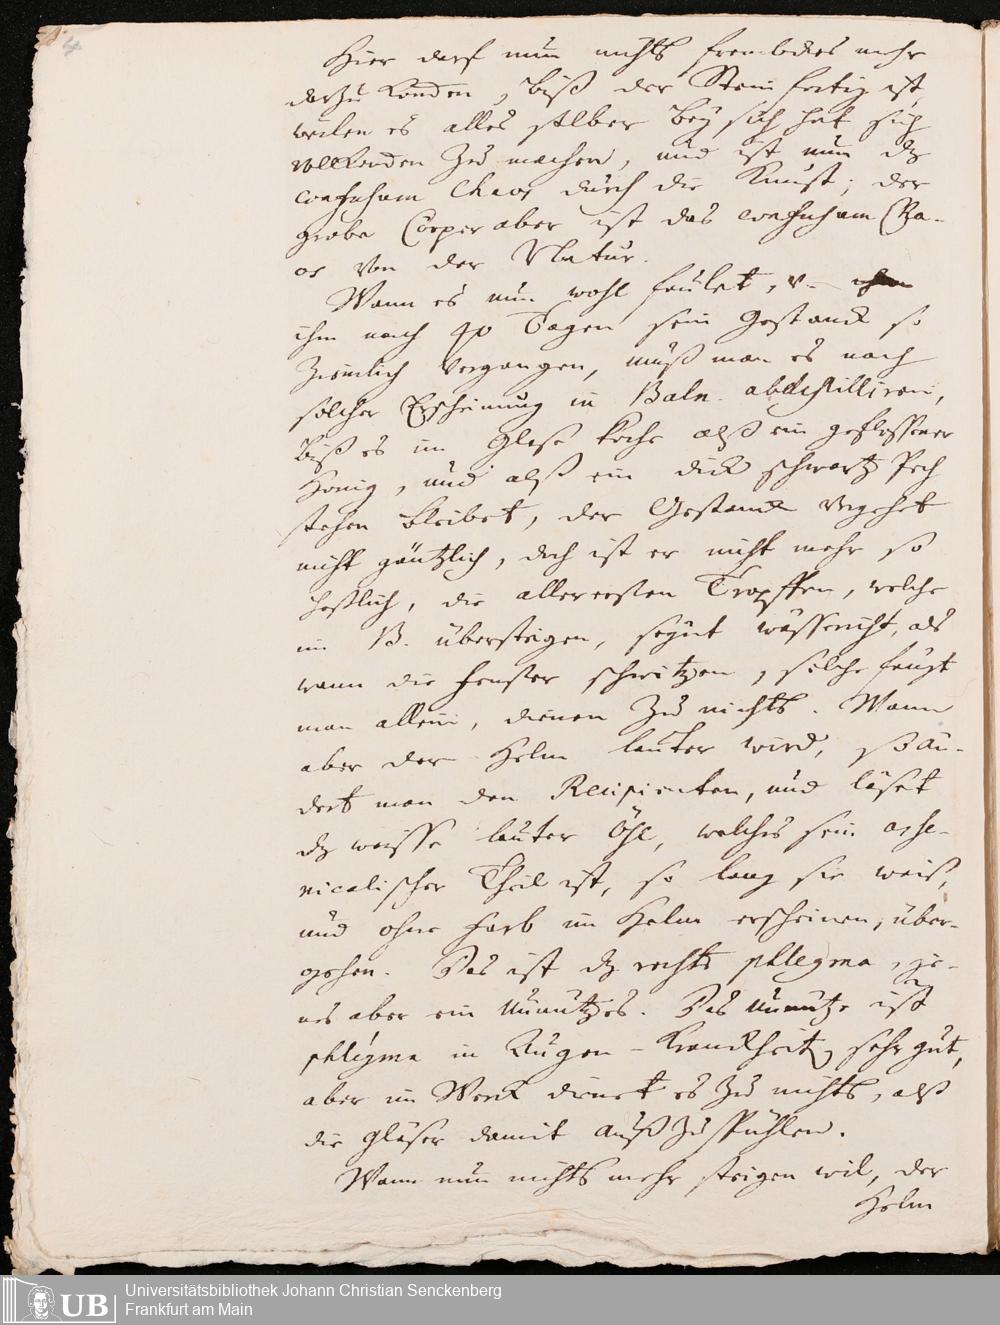 4
Hier darf nun nichts frembdes mehr
darzu kom̄en, biß der Stein fertig ist,
weilen es alles selber bey sich hat sich
vollkom̄en zu machen, und ist nun dz
Chaos durch die Kunst; der
grobe Cörper aber ist das Cha-
os von der Natur.
Wann es nun wohl faulet, v.
ihm nach 40 Tagen sein Gestanck so
ziemlich vergangen, muß man es nach
solcher Erscheinung in Baln. abdestilliren,
biß es im Glase koche alß ein geflossener
Honig, und alß ein dick schwartz Pech
stehen bleibet, der Gestanck vergehet
nicht gäntzlich, doch ist er nicht mehr so
heßlich, die allerersten Tropffen, welche
im B. übersteigen, seynt wässericht, als
wann die Fenster schwitzen, solche fängt
man allein, dienen zu nichts. Wann
aber der Helm lauter wird, so än-
dert man den Recipienten, und läset
dz weisse lauter Öhl, welches sein arse-
nicalischer Theil ist, so lang sie weis,
und ohne Farb im Helm erscheinen, über-
gehen. Das ist dz rechte phlegma, je-
nes aber ein unnützes. Das unnütze ist
phlegma in Augen-Kranckheiten sehr gut,
aber im Werck dienet es zu nichts, alß
die Gläser damit außzuspühlen.
Wann nun nichts mehr steigen wil, der
Helm
UB
Universitätsbibliothek Johann Christian Senckenberg
Frankfurt am Main